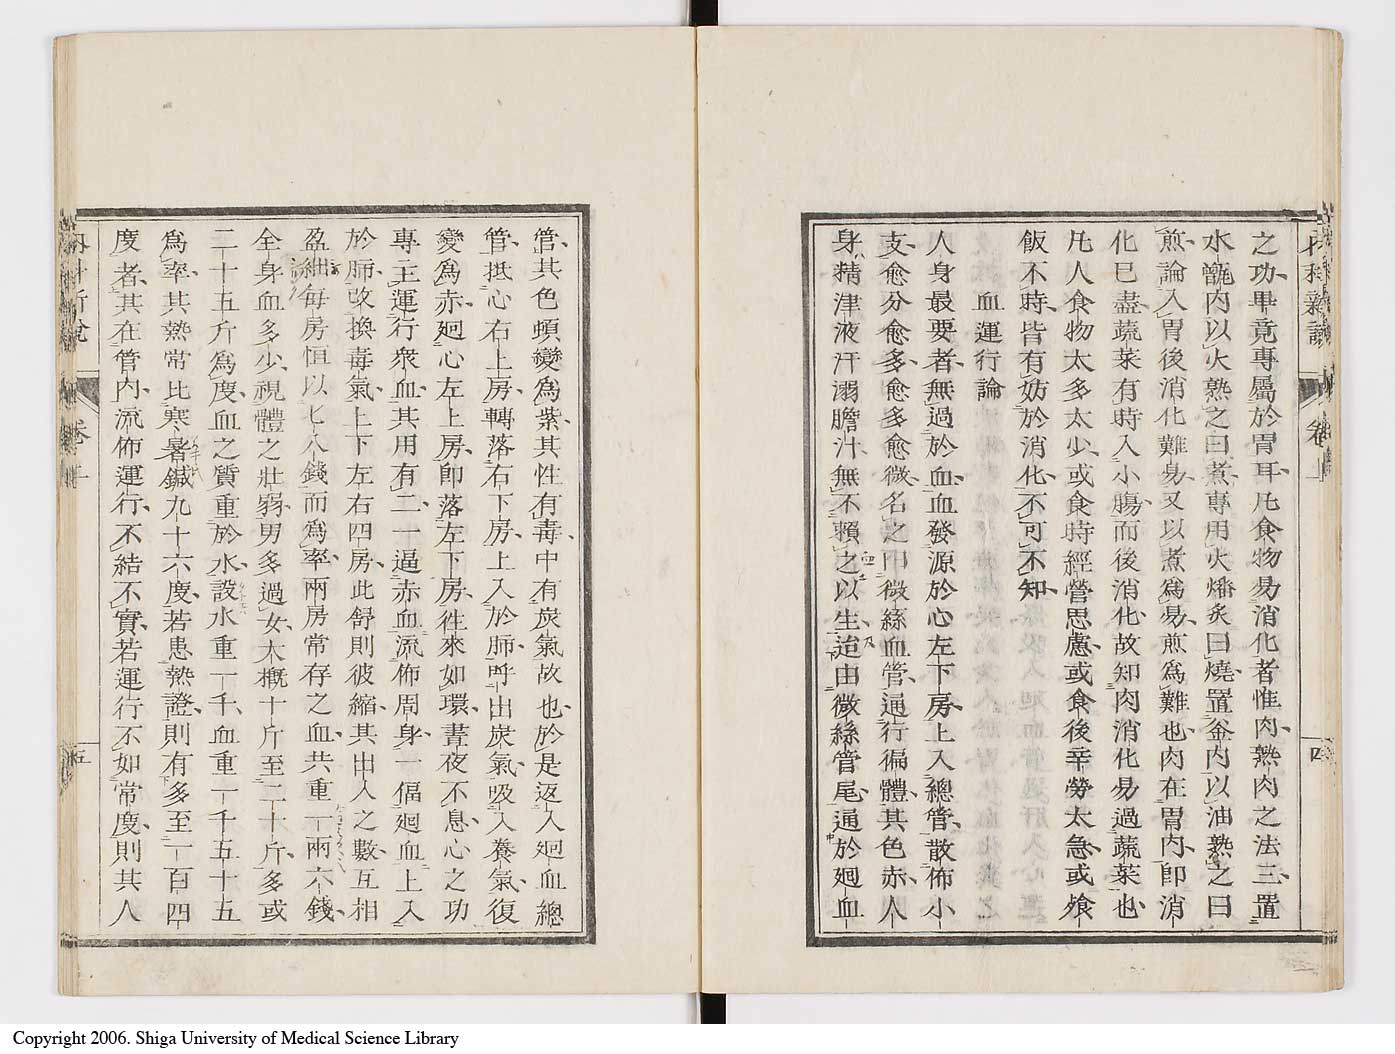 之功畢竟專屬於胃耳凡食物易消化者惟肉熟肉之法三置
水甑内以火熟之曰煮專用火燔炙曰燒置釜内以油熟之曰
煎論入胃後消化難易又以煮爲易煎爲難也肉在胃内即消
化已盡蔬菜有時入小腸而後消化故知肉消化易過蔬菜也
凡人食物太多太少或食時經營思慮或食後辛勞太急或飱
飯不時皆有妨於消化不可不知
血運行論
人身最要者無過於血血發源於心左下房上入總管散佈小
支愈分愈多愈多愈微名之曰微絲血管通行徧體其色赤人
身精津液汗溺膽汁無不賴之以生迨由微絲管尾通於廻血
管其色頓變爲紫其性有毒中有炭氣故也於是返入廻血總
管抵心右上房轉落右下房上入於肺呼出炭氣吸入養氣復
變爲赤廻心左上房即落左下房徃來如環晝夜不息心之功
專主運行衆血其用有二一逼赤血流佈周身一傴廻血上入
於肺改換毒氣上下左右四房此舒則彼縮其出入之數互相
盈細每房恒以七八錢而爲率兩房常存之血共重一兩六錢
全身血多少視體之壯弱男多過女大概十斤至二十斤多或
二十五斤爲度血之質重於水設水重一千血重一千五十五
爲率其熱常比寒暑鍼九十六度若患熱證則有多至一百四
度者其在管内流佈運行不結不實若運行不如常度則其人
内科新說
卷上
四
卷上
五
Copyright 2006. Shiga University of Medical Science Library